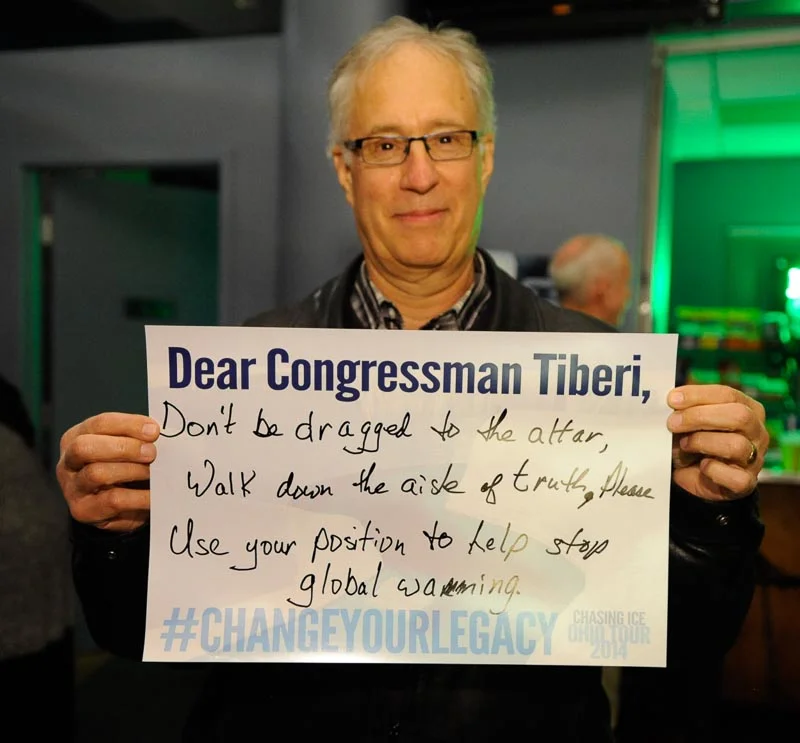 Dear Congressman Tiberi,
Don't be dragged to the altar,
Walk down the aisle of truth, Please
Use your position to help stop
global warming.
#CHANGEYOURLEGACY
CHASING ICE
OHIO TOUR
2014